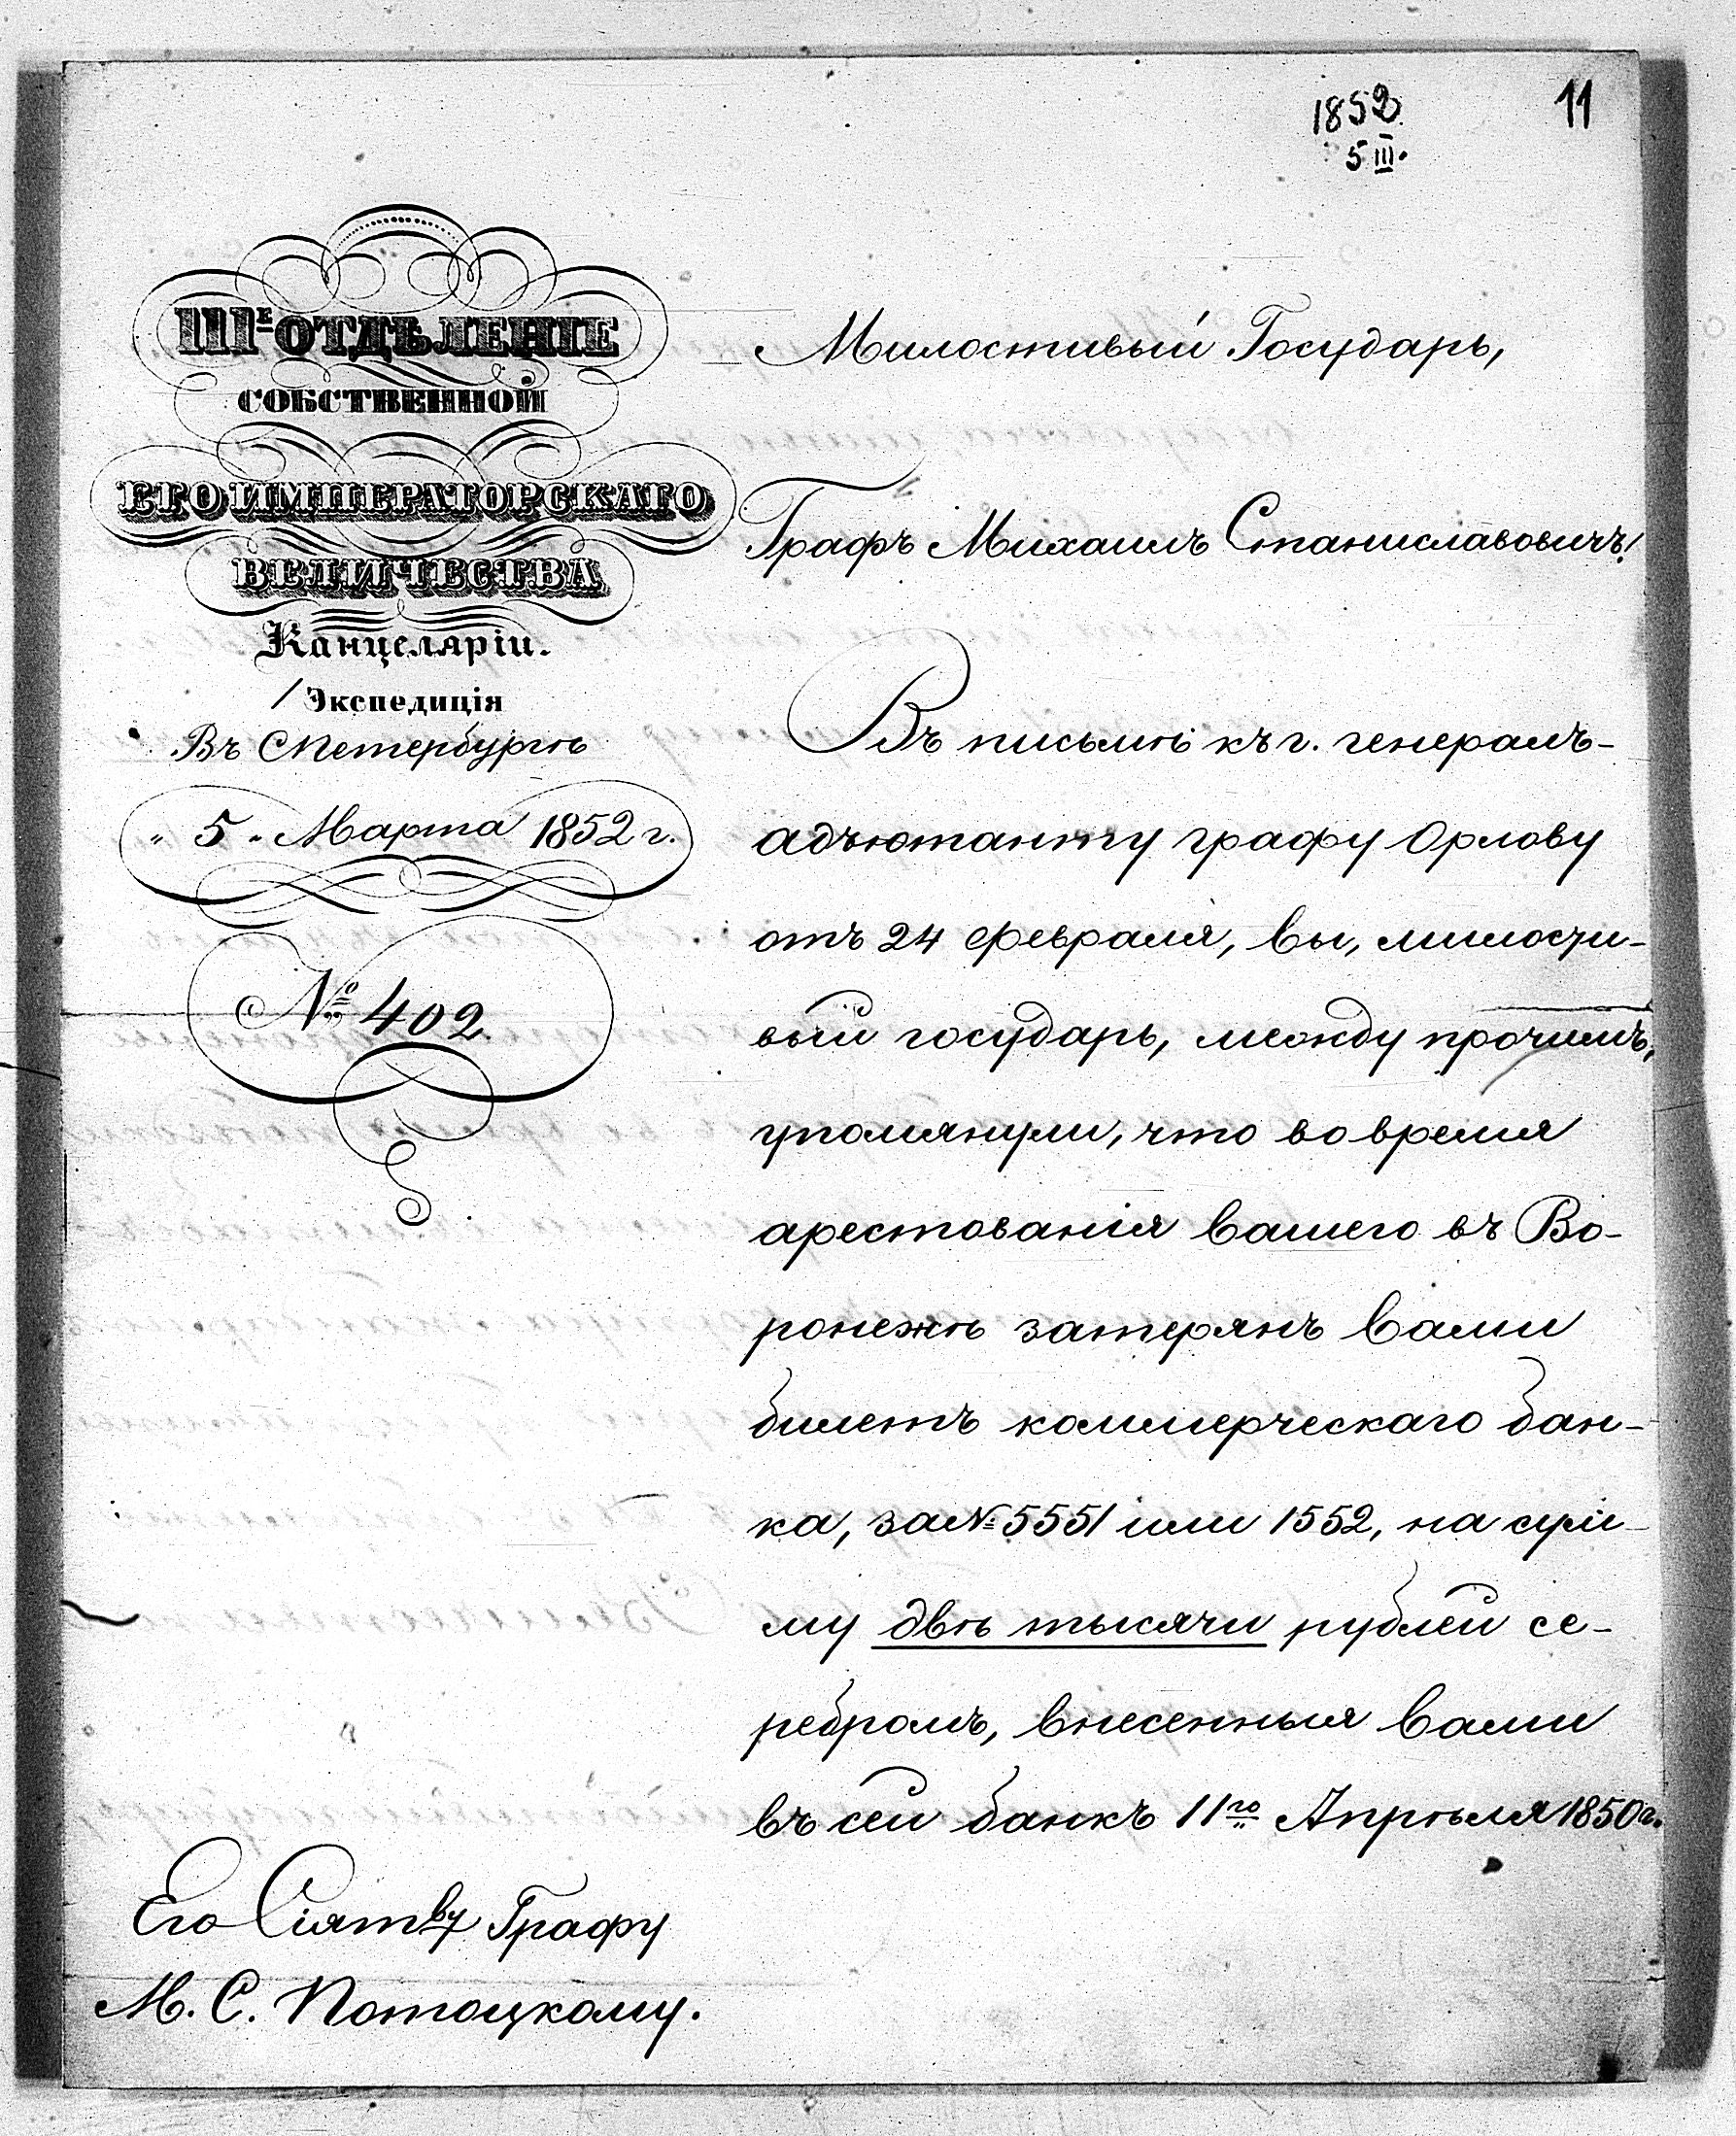 1852
5 III.
11
IIIᴱ ОТДѢЛЕНІЕ
СОБСТВЕННОЙ
ЕГО ИМПЕРАТОРСКАГО
ВЕЛИЧЕСТВА
Канцеляріи.
/ Экспедиція
Въ СПетербургѣ
„ 5 „ Марта 1852 г.
№ 402.
Милостивый Государь,
Графъ Михаилъ Станиславовичъ!
Въ письмѣ къ г. генералъ-
адъютанту графу Орлову
отъ 24 февраля, вы, милости-
вый государь, между прочимъ,
упомянули, что во время
арестованія вашего въ Во-
ронежѣ затерянъ вами
билетъ коммерческаго бан-
ка, за № 5551 или 1552, на сум-
му двѣ тысячи рублей се-
ребромъ, внесенныя вами
въ сей банкъ 11го Апрѣля 1850 г.
Его Сіятву Графу
М. С. Потоцкому.